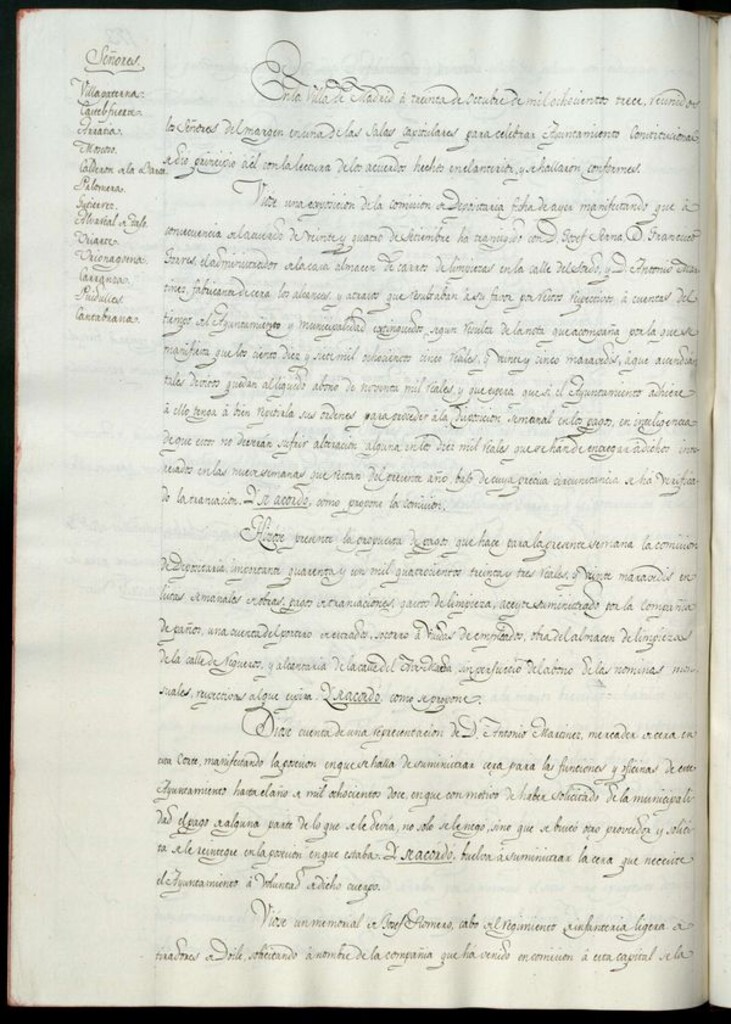 Señores
Villapaterna
Castelfuerte
Arratia
Moreno
Calderon de la Barca
Palomera
Gutierrez
Uriarte
Carranza
Cantabrana
En la Villa de Madrid á treinta de Octubre de mil ochocientos trece, reunidos
los Señores del margen en una de las Salas capitulares para celebrar Ayuntamiento Constitucional
se dio principio á él con la lectura de los acuerdos hechos en el anterior, y se hallaron conformes.
Viose una exposicion de la comision de Depositaria fecha de ayer manifestando que á
consecuencia del acuerdo de veinte y quatro de Setiembre ha transigido con D. Josef Serna, D. Francisco
el administrador de la casa almacen de carros de limpiezas en la calle del y D. Antonio Mar-
tinez, fabricante de cera, los alcances, y atrasos que resultaban á su favor por restos respectivos á cuentas del
tiempo del Ayuntamiento y municipalidad extinguidos, segun resulta de la nota que acompaña por la que se
manifiesta que los ciento diez y siete mil ochocientos cinco reales, y veinte y cinco maravedis, á que ascendian
tales creditos quedan al liquido abono de noventa mil reales, y que espera que si el Ayuntamiento adhiere
á ello tenga á bien repetirla sus ordenes para proceder á la disposicion semanal en los pagos, en inteligencia
de que estos no deverán sufrir alteracion alguna en los diez mil reales que se han de entregar á dichos inte-
resados en las nueve semanas que restan del presente año, bajo de cuya precisa circunstancia se há verifica-
do la transacion. Y se acordó, como propone la comision.
Hizose presente la propuesta de pagos que hace para la presente semana la comision
de Depositaria importante quarenta y un mil quatrocientos treinta y tres reales y veinte maravedis en
listas semanales de obras, pagos de transaciones, gastos de limpieza, aceyte suministrado por la compañia
de paños, una cuenta del portero de estrados, socorro á Viudas de empleados, obra del almacen de limpiezas
de la calle de Regueros, y alcantarilla de la calle del sin perjuicio del abono de las nominas men-
suales, respectivas al que espira. Y se acordó, como se propone.
Diose cuenta de una representacion de D. Antonio Martinez, mercader de cera en
esta Corte, manifestando la posesion en que se halla de suministrar cera para las funciones y oficinas de este
Ayuntamiento hasta el año de mil ochocientos doce, en que con motivo de haber solicitado de la municipali-
dad el pago de alguna parte de lo que se le devia, no solo se le negó, sino que se buscó otro proveedor y solici-
ta se le reintegre en la posesion en que estaba. Y se acordó, buelva á suministrar la cera que necesite
el Ayuntamiento á voluntad de dicho cuerpo.
Viose un memorial de Josef Romero, cabo del regimiento de infanteria ligera de
tiradores de Doile, solicitando á nombre de la compañia que ha venido en comision á esta capital se la